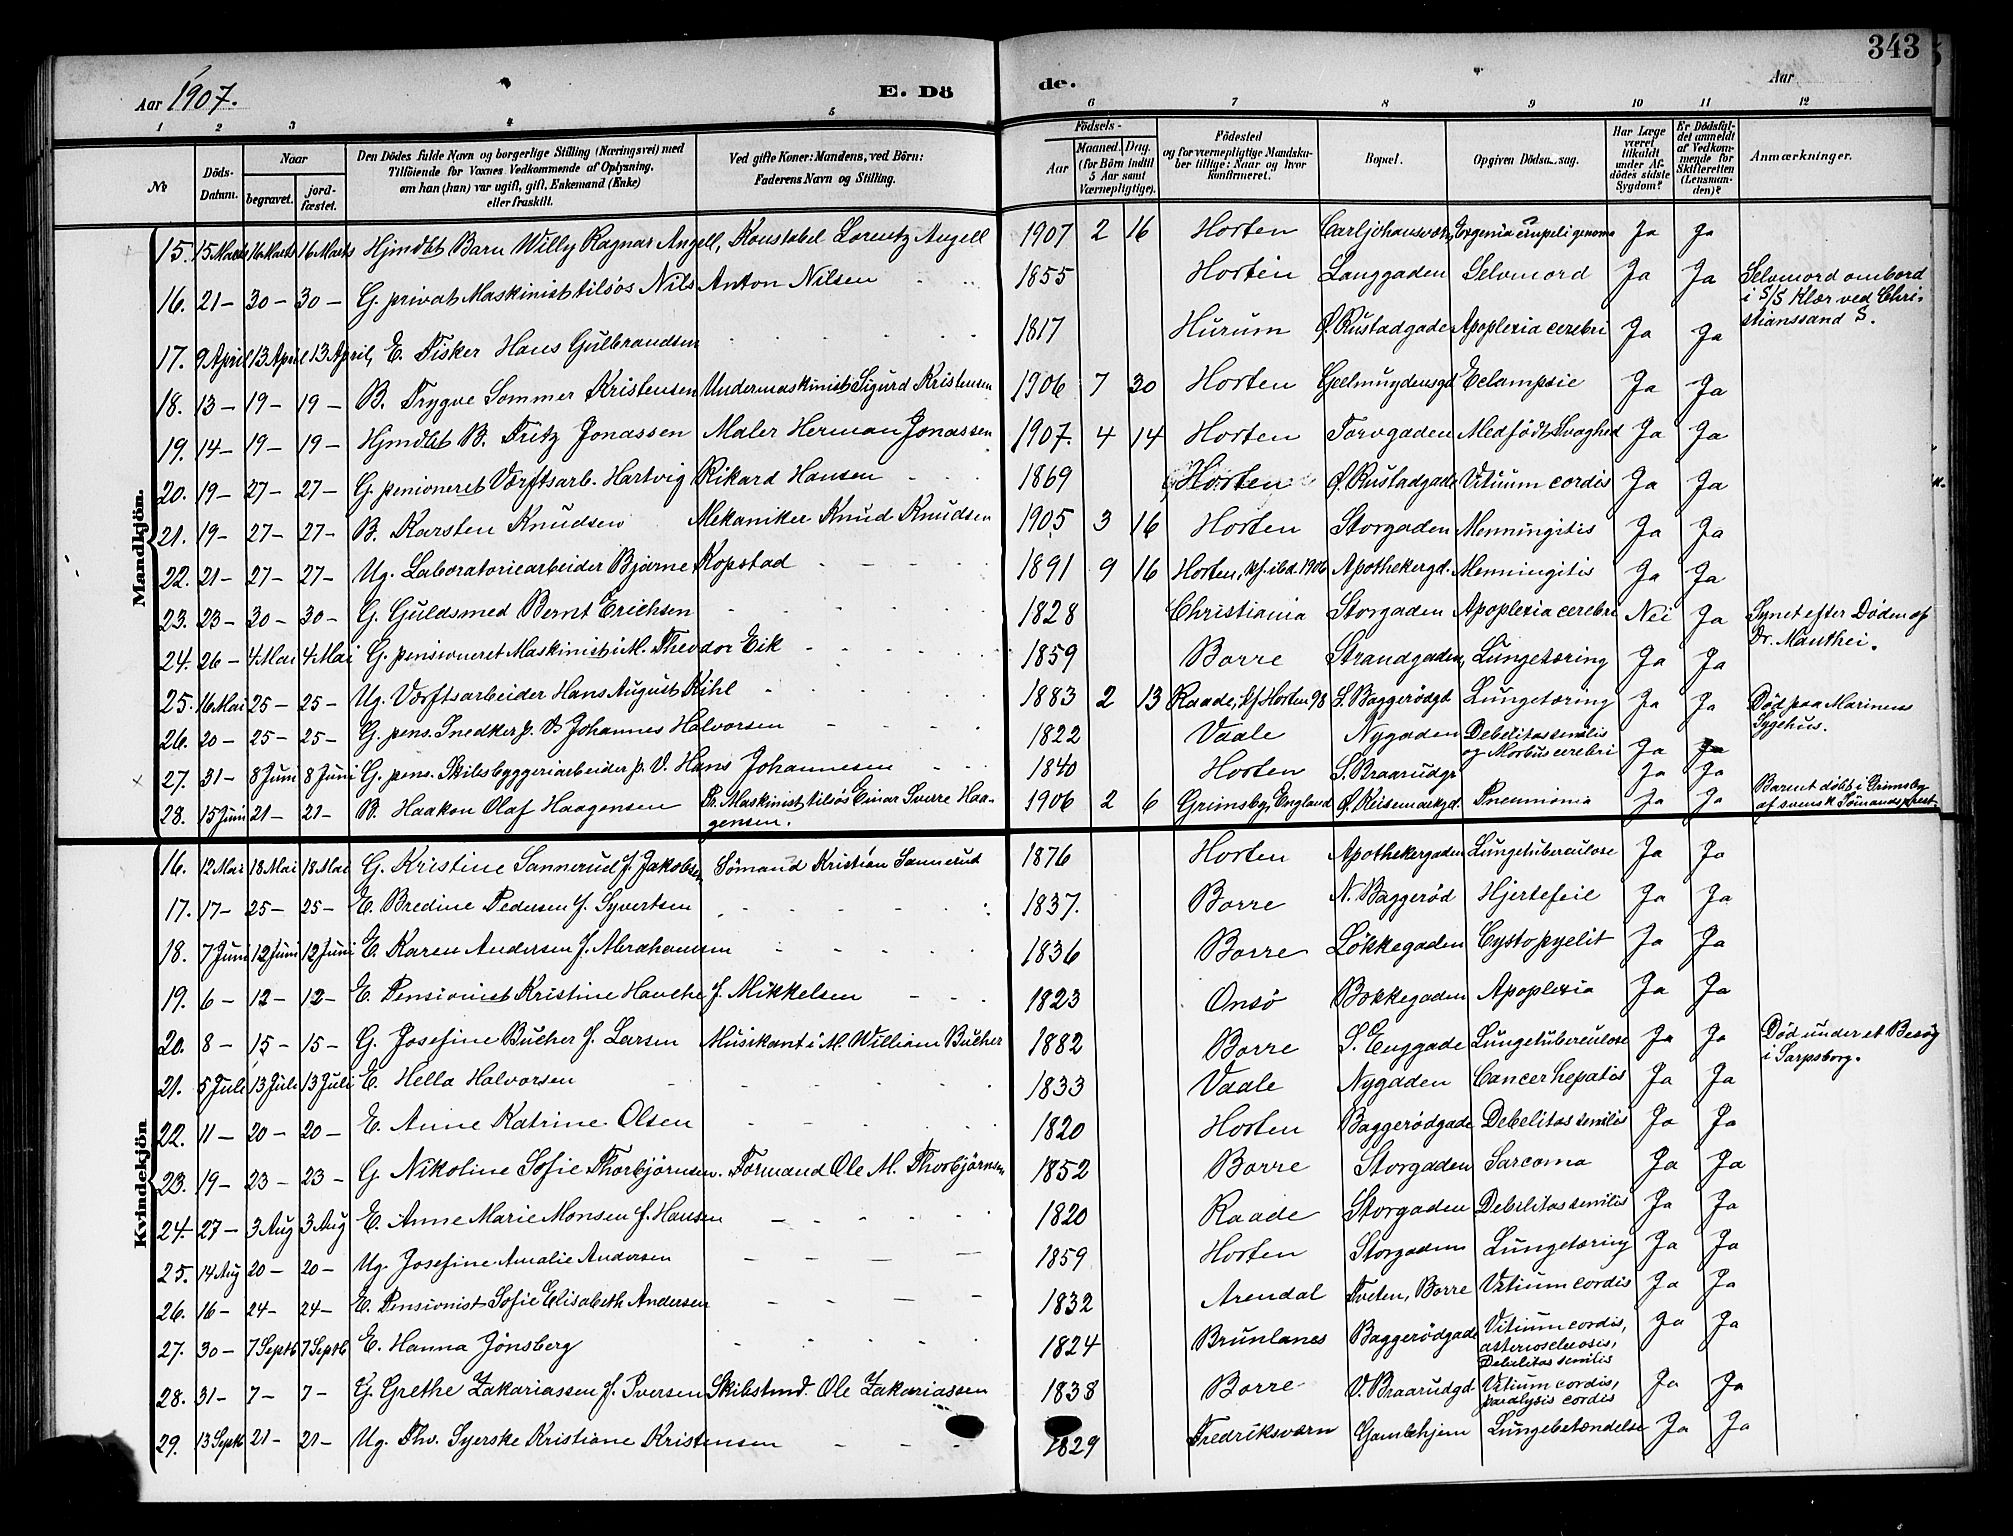 343
Aar 1907.
E. Dö de.
Aar
1 2 3 4 5 6 7 8 9 10 11 12
No
Döds-Datum.
Naar
begravet.
jord-fæstet.
Den Dödes fulde Navn og borgerlige Stilling (Næringsvei) med
Tilföiende for Voxnes Vedkommende af Oplysning,
om han (hun) var ugift, gift, Enkemand (Enke)
eller fraskilt.
Ved gifte Koner: Mandens, ved Börn:
Faderens Navn og Stilling.
Födsels-
Aar
Maaned. Dag.
(for Börn indtil
5 Aar samt
Værnepligtige).
Födested
og for værnepligtige Mandska-
ber tillige: Naar og hvor
konfirmeret.
Bopæl.
Opgiven Dödsaarsag.
Har Læge
været
tilkaldt
under Af-
dödes sidste
Sygdom?
Er Dödsfal-
det anmeldt
af Vedkom-
mende for
Skifteretten
(Lensman-
den)?
Anmærkninger.
Mandkjön.
15. 15 Marts 16 Marts 16 Marts Hjmdbt Barn Willy Ragnar Angell, Konstabel Lorentz Angell 1907 2 16 Horten Carljohansværn Ja Ja
16. 21 – 30 – 30 – G. privat Maskinist tilsøs Nils Anton Nilsen 1855 Horten Langgaden Selvmord Ja Ja Selvmord ombord
i S/S Klær ved Chri-
stianssand S.
17. 9 April 13 April 13 April, E. Fisker Hans Gulbrandsen 1817 Hurum Ø. Rustadgade Apoplexia cerebri Ja Ja
18. 13 – 19 – 19 – B. Trygve Sommer Kristensen Undermaskinist Sigurd Kristensen 1906 7 30 Horten Geelmuydensgd Eclampsie Ja Ja
19. 14 – 19 – 19 – Hjmdbt B. Fritz Jonassen Maler Herman Jonassen 1907. 4 14 Horten Torvgaden Medfødt Svaghed Ja Ja
20. 19 – 27 – 27 – G. penioneret Værftsarb. Hartvig Rikard Hansen 1869 Horten Ø. Rustadgade Vitium cordis Ja Ja
21. 19 – 27 – 27 – B. Karsten Knudsen Mekaniker Knud Knudsen 1905 3 16 Horten Storgaden Menningitis Ja Ja
22. 21 – 27 – 27 – Ug. Laboratoriearbeider Bjarne Kopstad 1891 9 16 Horten, kf. ibd. 1906 Apothekergd. Menningitis Ja Ja
23. 23 – 30 – 30 – G. Guldsmed Bernt Erichsen 1828 Christiania Storgaden Apoplexia cerebri Nei Ja Synet efter Døden af
Dr. Manthei.
24. 26 – 4 Mai 4 Mai G. pensioneret Maskinist i M. Theodor Eik 1859 Borre Strandgaden, Lungetæring Ja Ja
25. 16 Mai 25 – 25 – Ug. Værftsarbeider Hans August Kihl 1883 2 13 Raade, kf Horten 98 S. Baggerødgd Lungetæring Ja Ja Død paa Marinens
Sygehus.
26. 20 – 25 – 25 – G. pens. Snedker p. V. Johannes Halvorsen 1822 Vaale Nygaden Debelitas senilis
og Morbus cerebri Ja Ja
27. 31 – 8 Juni 8 Juni G. pens. Skibsbyggeriarbeider p. V. Hans Johannesen 1840 Horten S. Braarudgt Ja Ja
28. 15 Juni 21 – 21 – B. Haakon Olaf Haagensen Pr. Maskinist tilsøs Einar Sverre Haa-
gensen. 1906 2 6 Grimsby, England Ø. Keisemarkgd. Pneumonia Ja Ja Barnet døbt i Grimsby
af svensk Sömandsprest
Kvindekjön
16. 12 Mai 18 Mai 18 Mai G. Kristine Sannerud f. Jakobsen Sömand Kristian Sannerud 1876 Horten Apothekergaden Lungetuberculose Ja Ja
17. 17 – 25 – 25 – E. Bredine Pedersen f. Syvertsen 1837. Borre N. Baggerød Hjertefeil Ja Ja
18. 7 Juni 12 Juni 12 Juni E. Karen Andersen f. Abrahamsen 1836 Borre Løkkegaden Cystopyelit Ja Ja
19. 6 – 12 – 12 – E. Pensionist Kristine Hauche f. Mikkelsen 1823 Onsö Bokkegaden Apoplexia Ja Ja
20. 8 – 15 – 15 – G. Josefine Bucher f. Larsen Musikant i M. William Bucher 1882 Borre S. Enggade Lungetuberculose Ja Ja Død under et Besøg
i Sarpsborg.
21. 5 Juli 13 Juli 13 Juli E. Hella Halvorsen 1833 Vaale Nygaden Cancer hepatis Ja Ja
22. 11 – 20 – 20 – E. Anne Katrine Olsen 1820 Horten Baggerødgade Debelitas senilis Ja Ja
23. 19 – 23 – 23 – G Nikoline Sofie Thorbjørnsen. Formand Ole M. Thorbjørnsen 1852 Borre Storgaden Sarcoma Ja Ja
24. 27 – 3 Aug 3 Aug E. Anne Marie Monsen f. Hansen 1820 Raade Storgaden Debelitas senilis Ja Ja
25. 14 Aug 20 – 20 – Ug. Josefine Amalie Andersen 1859 Horten Storgaden Lungetæring Ja Ja
26. 16 – 24 – 24 – E. Pensionist Sofie Elisabeth Andersen 1832 Arendal Tveten, Borre Vitium cordis Ja Ja
27. 30 – 7 Septb 7 Septb E. Hanna Jönsberg 1824 Brunlanes Baggerødgade Vitium cordis,
Debelitas senilis Ja Ja
28. 31 – 7 – 7 – G. Grethe Zakariassen f. Iversen Skibstmd. Ole Zakariassen 1838 Borre V. Braarudgd Vitium cordis,
paralysis cordis Ja Ja
29. 13 Septb 21 – 21 – Ug. Fhv. Syerske Kristiane Kristensen 1829 Fredriksværn Gamlehjem Lungebetændelse Ja Ja